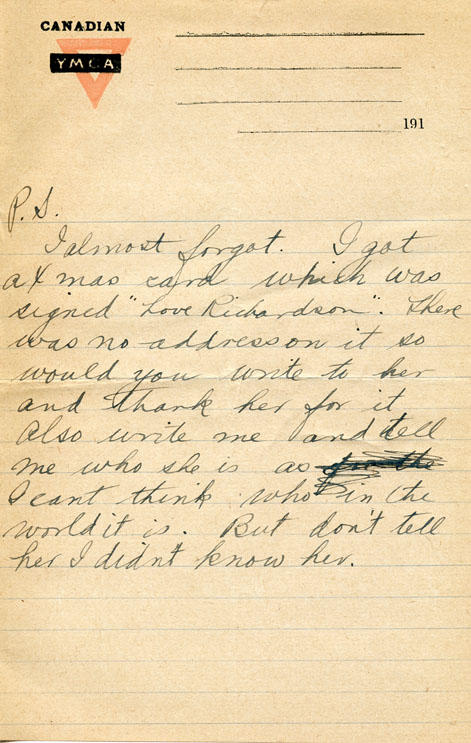 CANADIAN
YMCA
191
P.S.
I almost forgot. I got
a X mas card which was
signed "Love Richardson". There
was no address on it so
would you write to her
and thank her for it
Also write me and tell
me who she is as
I cant think who in the
world it is. But don't tell
her I didn't know her.